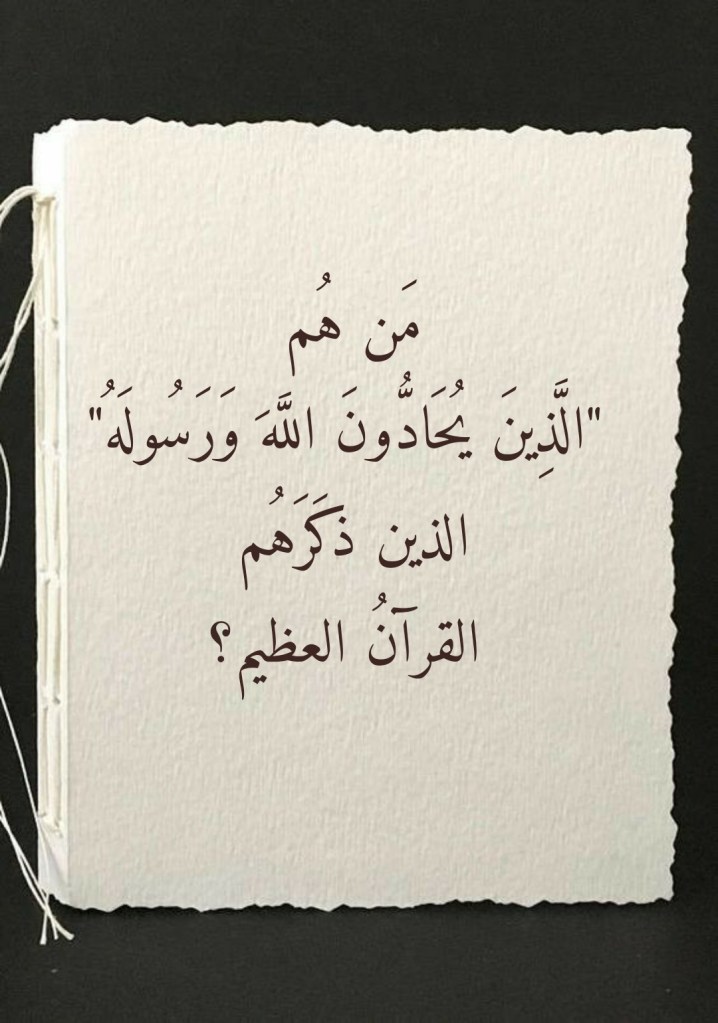 مَن هُم
"الَّذِينَ يُحَادُّونَ اللَّهَ وَرَسُولَهُ"
الذين ذكَرَهُم
القرآنُ العظيم؟